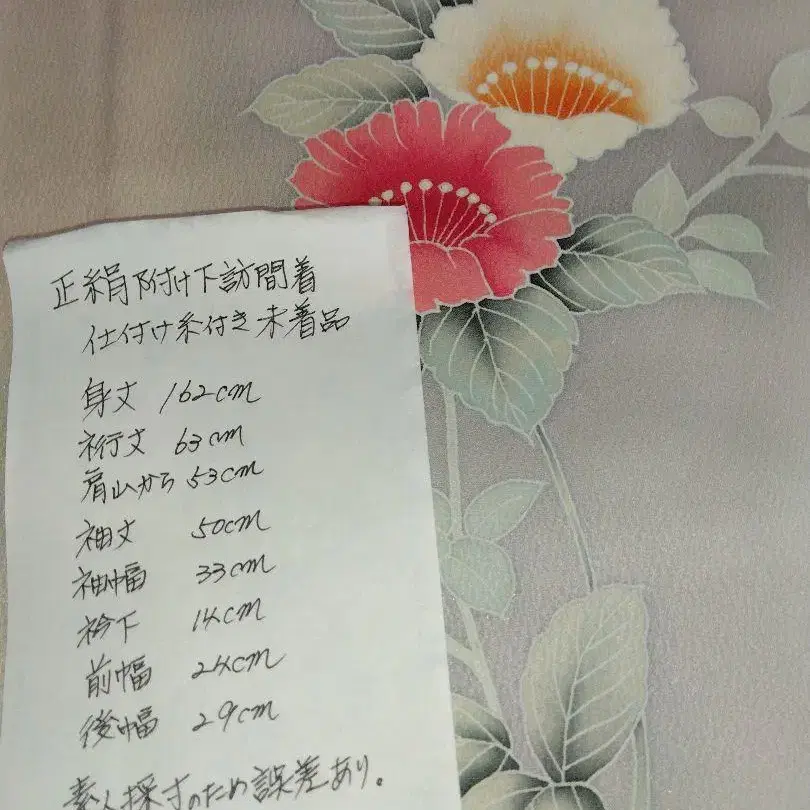 正絹附け下訪問着
仕付け糸付き未着品
身丈 162cm
裄丈 63cm
肩山から 53cm
袖丈 50cm
袖幅 33cm
衿下 14cm
前幅 24cm
後幅 29cm
素人採寸のため誤差あり。